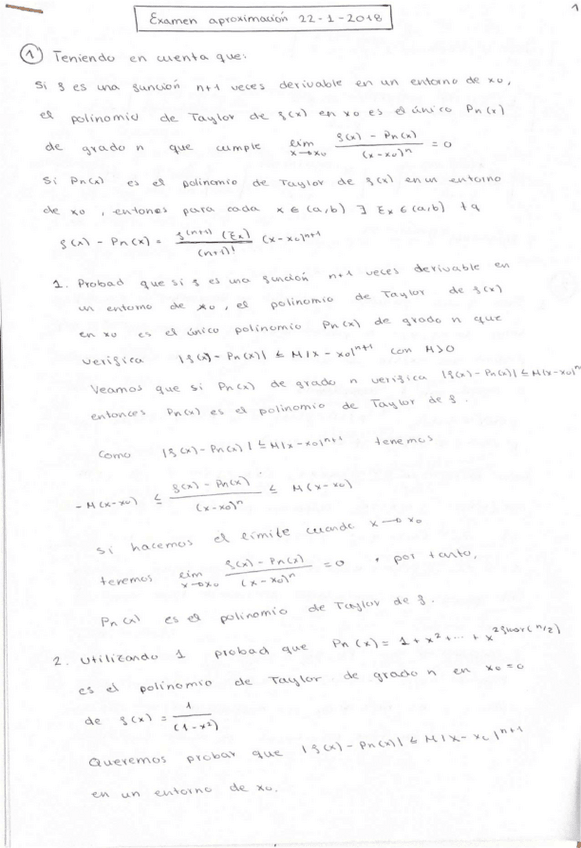 Examen aproximación 22-1-2018
1
① Teniendo en cuenta que:
Si f es una función n+1 veces derivable en un entorno de x₀,
el polinomio de Taylor de f(x) en x₀ es el único Pn(x)
de grado n que cumple lim x→x₀ (f(x) - Pn(x))/(x-x₀)ⁿ = 0
Si Pn(x) es el polinomio de Taylor de f(x) en un entorno
de x₀, entones para cada x ∈ (a,b) ∃ Ex ∈ (a,b) tq
f(x) - Pn(x) = f⁽ⁿ⁺¹⁾(Ex)/(n+1)! (x-x₀)ⁿ⁺¹
1. Probad que si f es una función n+1 veces derivable en
un entorno de x₀, el polinomio de Taylor de f(x)
en x₀ es el único polinomio Pn(x) de grado n que
verifica |f(x) - Pn(x)| ≤ M|x - x₀|ⁿ⁺¹ con M>0
Veamos que si Pn(x) de grado n verifica |f(x) - Pn(x)| ≤ M|x-x₀|ⁿ
entonces Pn(x) es el polinomio de Taylor de f.
Como |f(x) - Pn(x)| ≤ M|x-x₀|ⁿ⁺¹ tenemos
-M(x-x₀) ≤ (f(x) - Pn(x))/(x-x₀)ⁿ ≤ M(x-x₀)
Si hacemos el límite cuando x→x₀
tenemos lim x→x₀ (f(x) - Pn(x))/(x-x₀)ⁿ = 0, por tanto,
Pn(x) es el polinomio de Taylor de f.
2. Utilizando 1 probad que Pn(x) = 1 + x² + ... + x^(2floor(n/2))
es el polinomio de Taylor de grado n en x₀=0
de f(x) = 1/(1-x²)
Queremos probar que |f(x) - Pn(x)| ≤ M|x - x₀|ⁿ⁺¹
en un entorno de x₀.